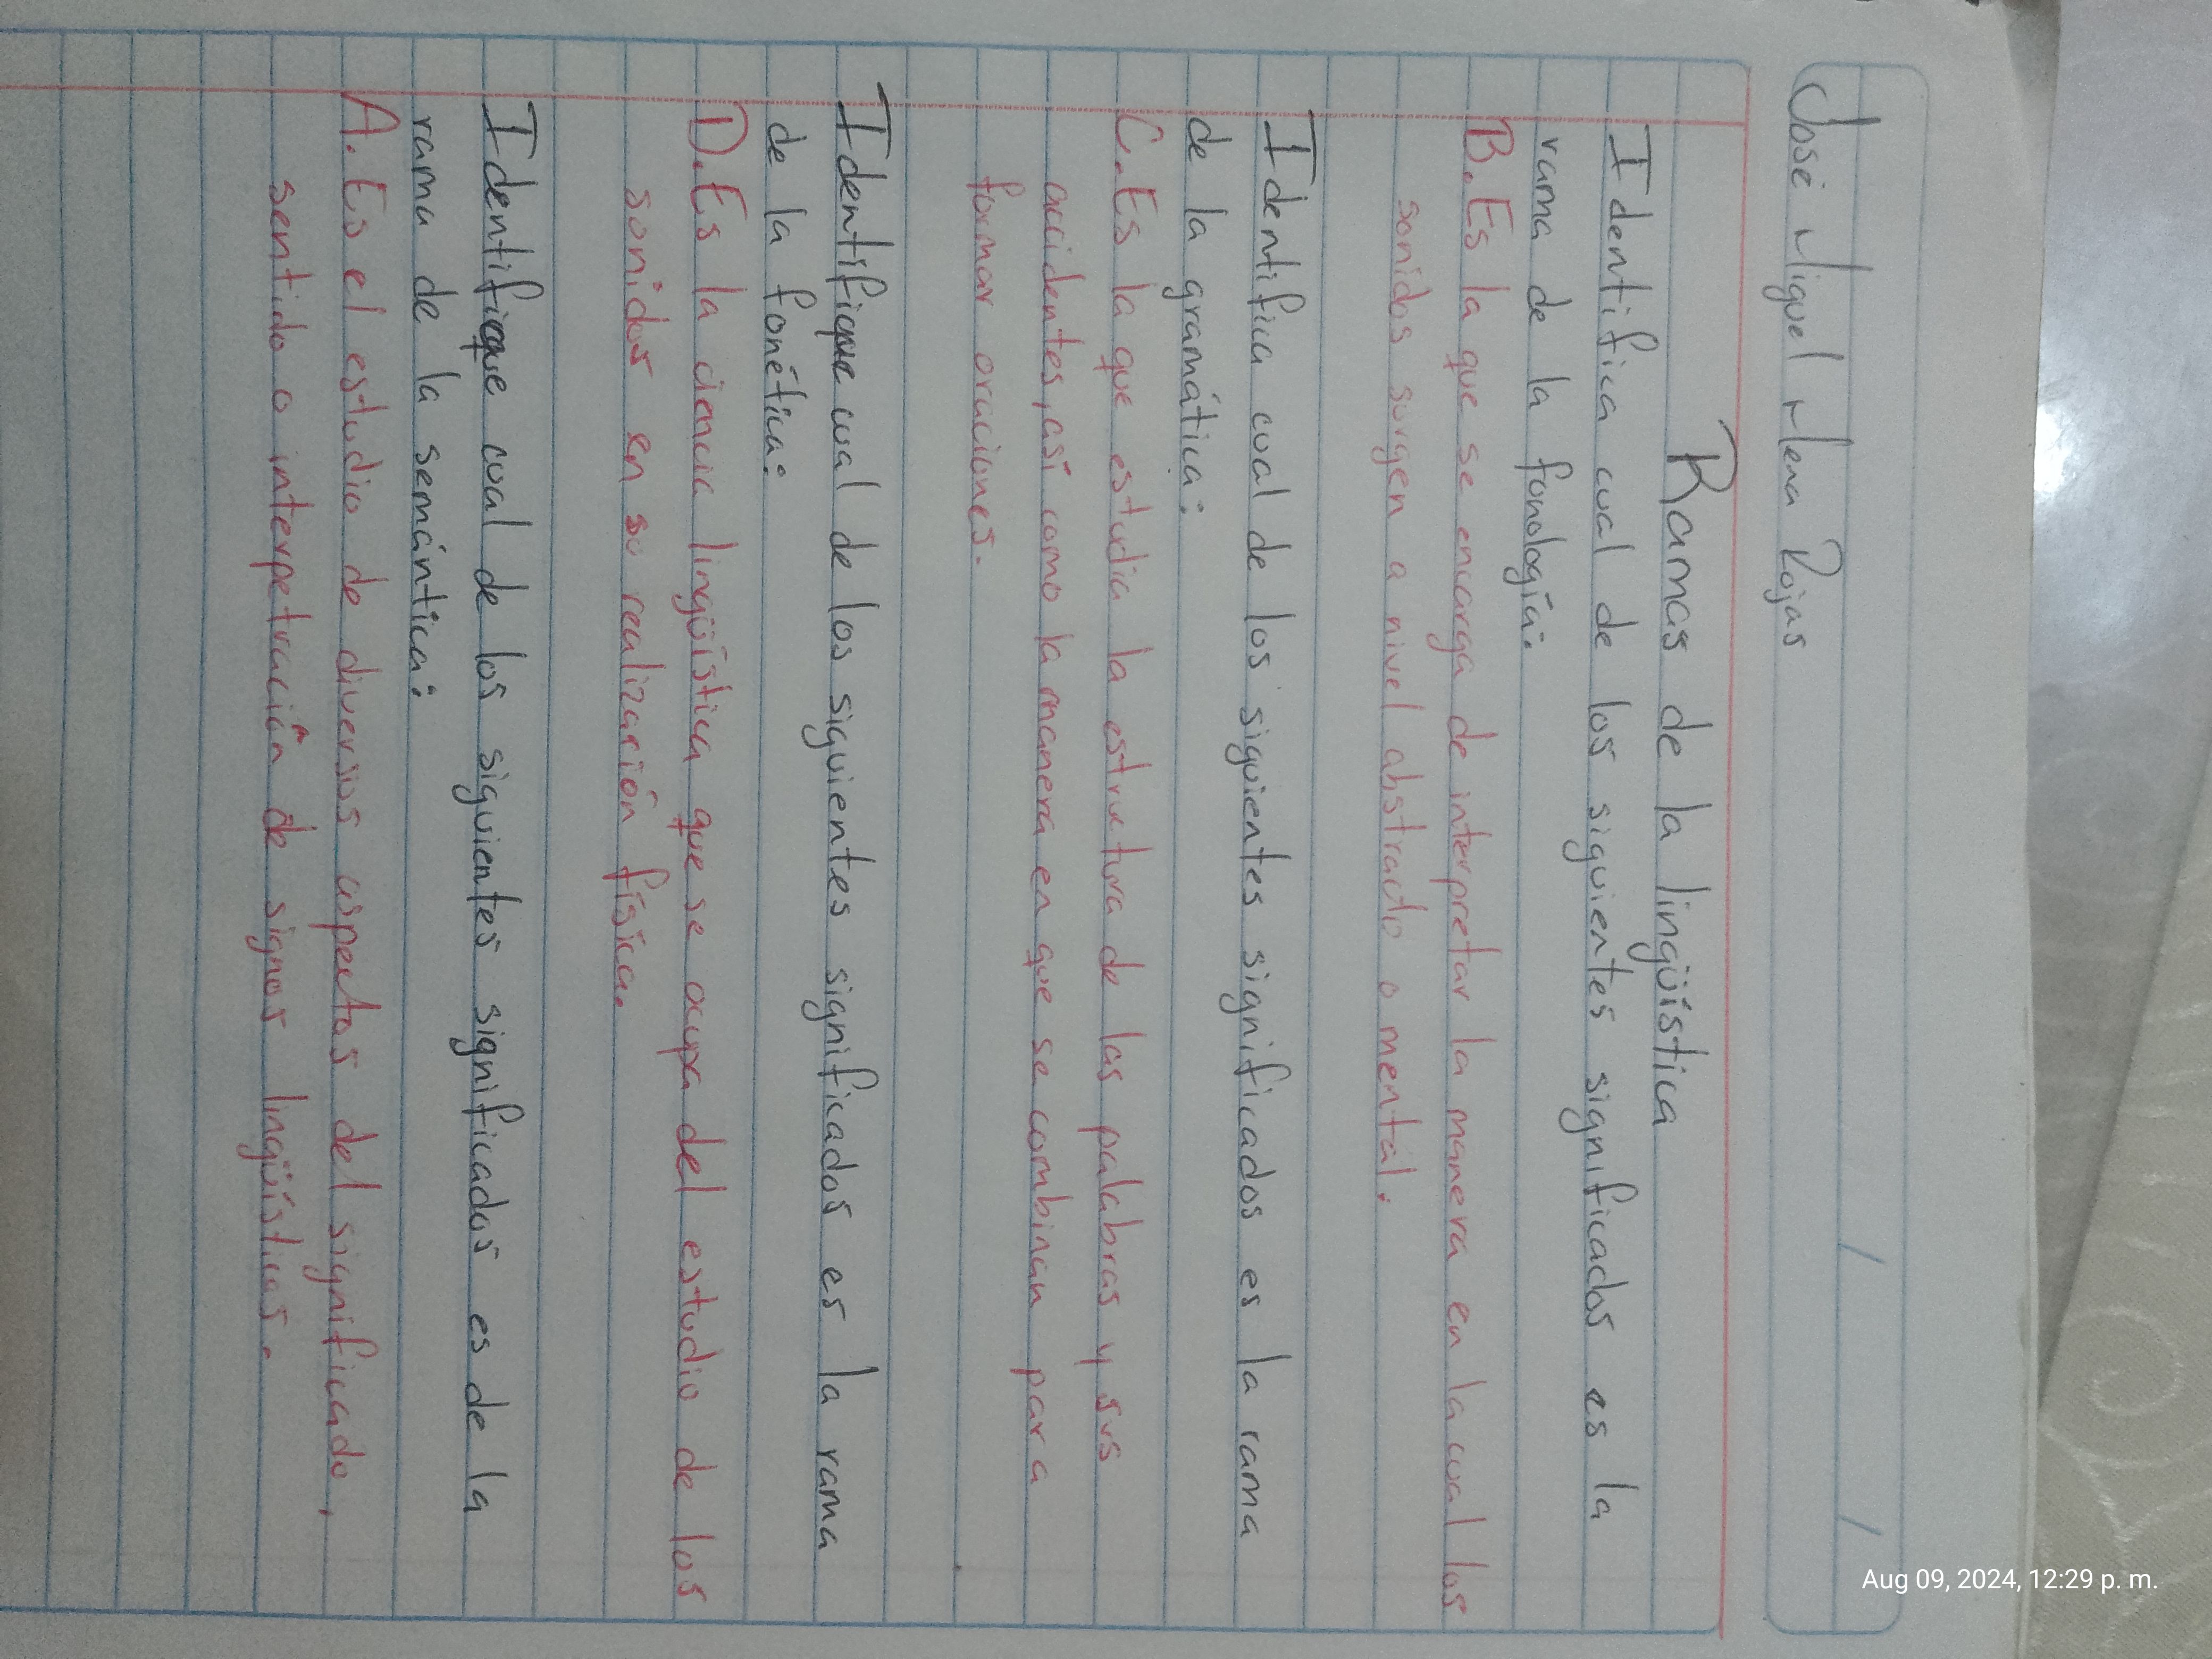 José Miguel Mena Rojas
Ramas de la lingüística
Identifica cual de los siguientes significados es la
rama de la fonología:
B. Es la que se encarga de interpretar la manera en la cual los
sonidos surgen a nivel abstracto o mental.
Identifica cual de los siguientes significados es la rama
de la gramática:
C. Es la que estudia la estructura de las palabras y sus
accidentes, así como la manera en que se combinan para
formar oraciones.
Identifique cual de los siguientes significados es la rama
de la fonética:
D. Es la ciencia lingüística que se ocupa del estudio de los
sonidos en su realización física.
Identifique cual de los siguientes significados es de la
rama de la semántica:
A. Es el estudio de diversos aspectos del significado,
sentido o interpetración de signos lingüísticos.
Aug 09, 2024, 12:29 p. m.